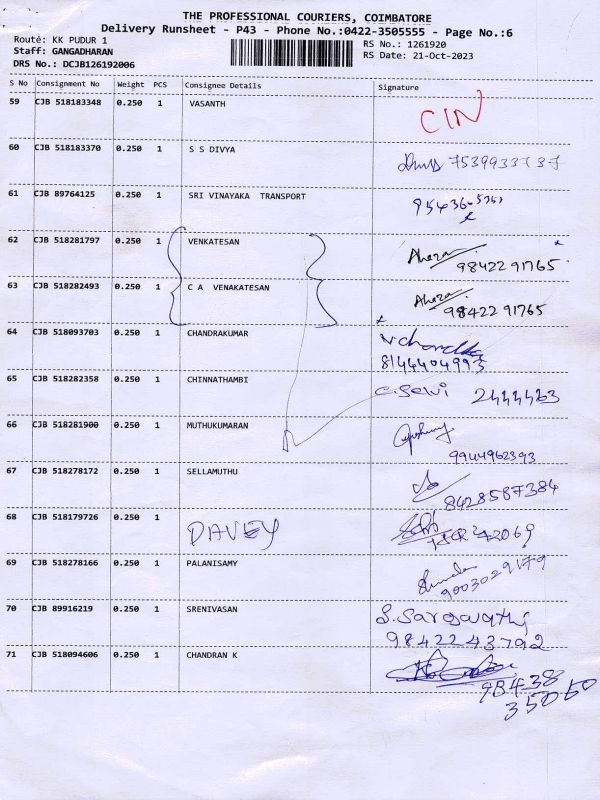 THE PROFESSIONAL COURIERS, COIMBATORE
Delivery Runsheet - P43 - Phone No.:0422-3505555 - Page No.:6
Route: KK PUDUR 1
RS No.: 1261920
Staff: GANGADHARAN
RS Date: 21-Oct-2023
DRS No.: DCJB126192006
S No Consignment No Weight PCS Consignee Details Signature
59 CJB 518183348 0.250 1 VASANTH CIN
60 CJB 518183370 0.250 1 S S DIVYA
61 CJB 89764125 0.250 1 SRI VINAYAKA TRANSPORT
62 CJB 518281797 0.250 1 VENKATESAN
98422 91765
63 CJB 518282493 0.250 1 C A VENAKATESAN
98422 91765
64 CJB 518093703 0.250 1 CHANDRAKUMAR
8144404993
65 CJB 518282358 0.250 1 CHINNATHAMBI C. Selvi 2444463
66 CJB 518281900 0.250 1 MUTHUKUMARAN
9944962393
67 CJB 518278172 0.250 1 SELLAMUTHU
8428587384
68 CJB 518179726 0.250 1 DAVEY
69 CJB 518278166 0.250 1 PALANISAMY
9003029179
70 CJB 89916219 0.250 1 SRENIVASAN S. Sarasvathi
98422 43792
71 CJB 518094606 0.250 1 CHANDRAN K
98438
35050